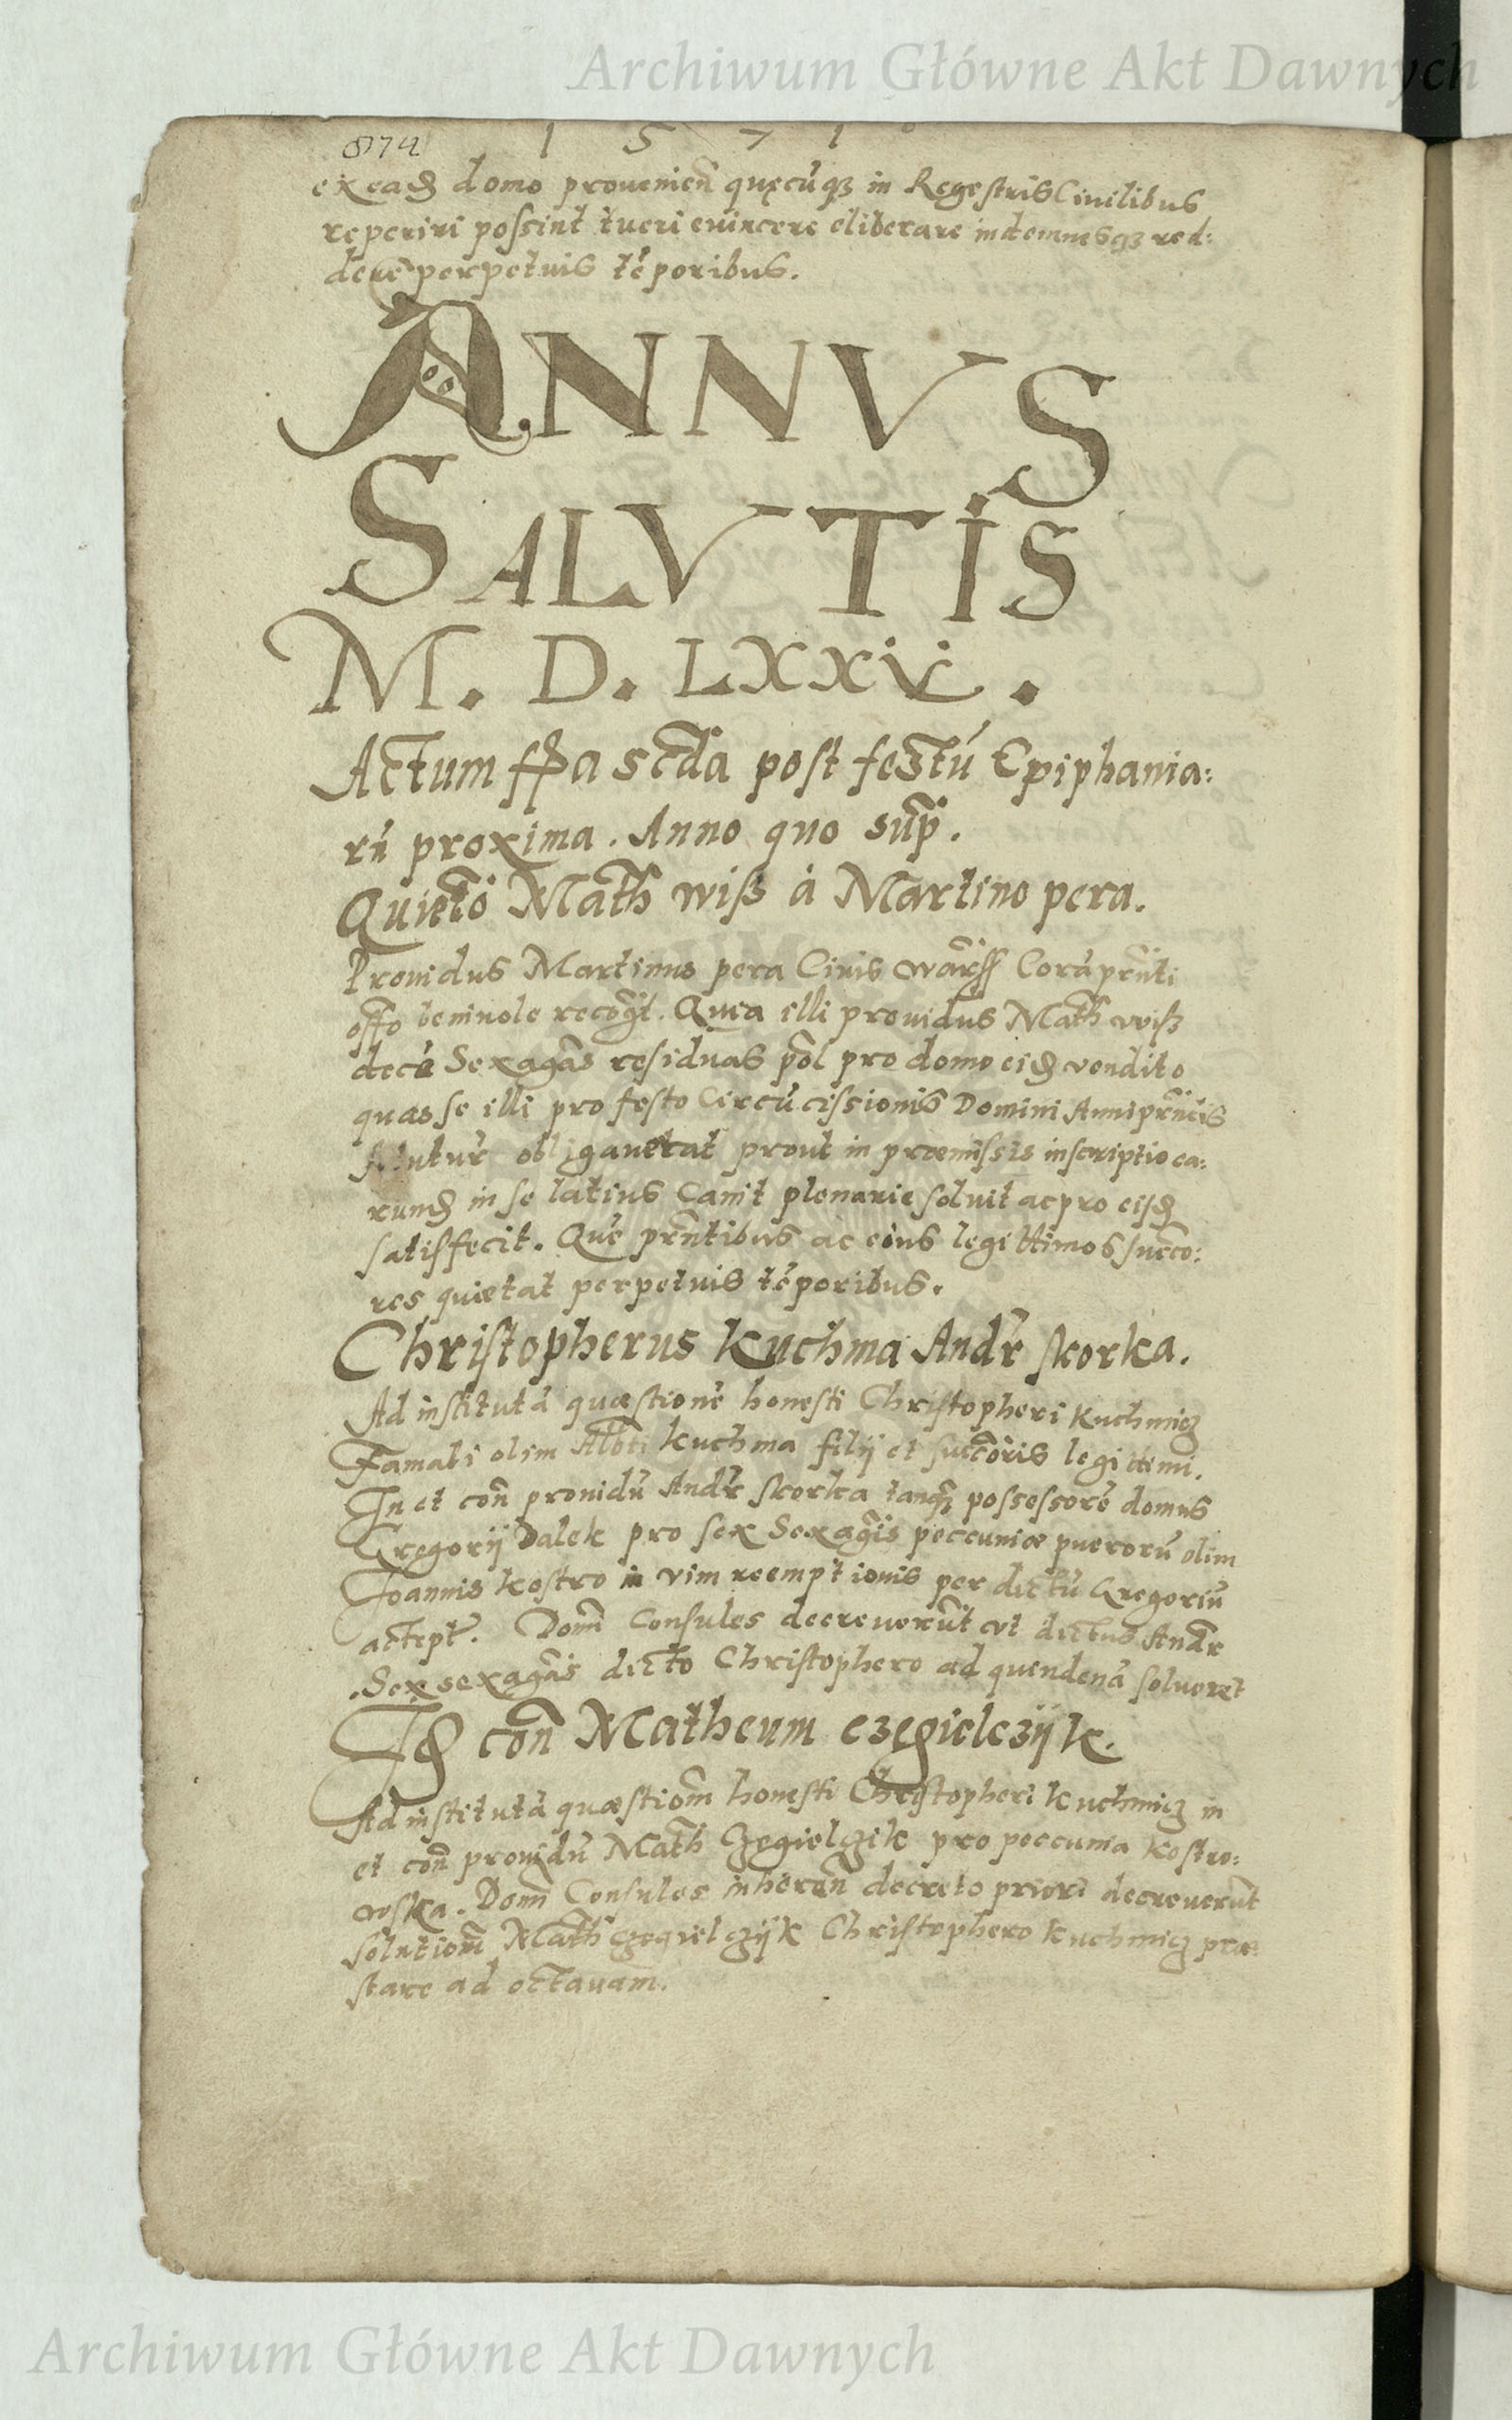 Archiwum Główne Akt Dawnych
874 1 5 7 1
ex ead domo provenien quęcuq in Regestris Civilibus
reperiri possint tueri evincere eliberare indemnesq red:
dere perpetuis tẽporibus.
ANNVS
SALVTIS
M. D. LXXV.
Actum ffa scda post festũ Epiphania:
rũ proxima. Anno quo sup.
Quietõ Math wiß à Martino pera.
Providus Martinus pera Civis warss Corã prnti
offo benivole recogt. Quia illi providus Math wiß
decẽ Sexagãs residuas pol pro domo eid vendito
quas se illi pro festo Circũcissionis Domini Anni prntis
obligaverat prout in præmissis inscriptio ea:
rund in se latius Canit plenarie solvit ac pro eisd
satisfecit. Que prntibus ac eius legittimos succo:
res quietat perpetuis tẽporibus.
Christopherus Kuchma Andr skorka.
Ad institutã quæstionẽ honesti Christopheri Kuchmicz
Famati olim Albti Kuchma filij et succoris legittimi.
In et con providũ Andr skorka tanq possessorẽ domus
Gregorij Dalek pro sex Sexagis peccuniæ puerorũ olim
Joannis Kostro in vim reemptionis per dictũ Gregoriũ
accept. Domi Consules decreverũt vt dictus Andr
Sex sexagãs dicto Christophero ad quindenã solveret
Id con Matheum czegielczijk.
Ad institutã quæstiom honesti Christopheri Kuchmicz in
et con providũ Math Czegielczik pro peccunia Kostro:
wska. Domi Consules inheren decreto priori decreverũt
solutiom Math czegielczijk Christophero Kuchmicz præ:
stare ad octavam.
Archiwum Główne Akt Dawnych